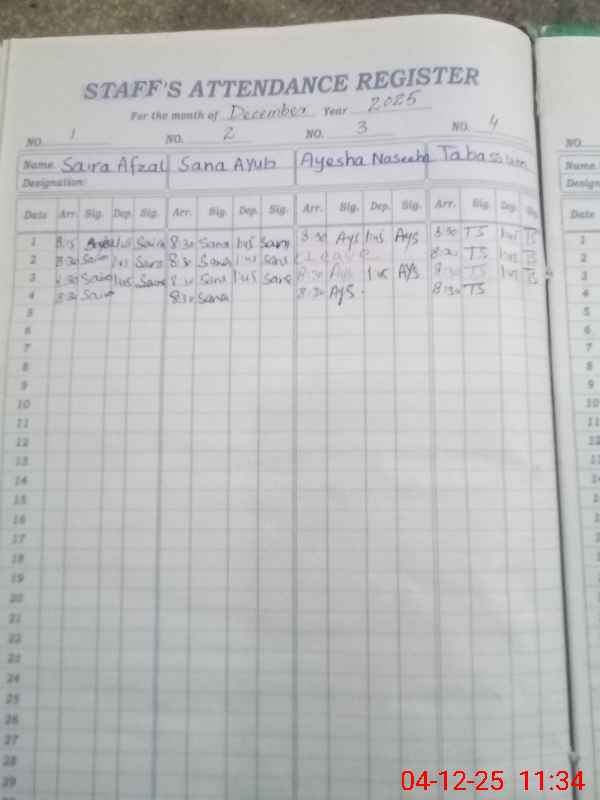 STAFF'S ATTENDANCE REGISTER
For the month of December Year 2025
NO. 1 NO. 2 NO. 3 NO. 4 NO.
Name. Saira Afzal Sana Ayub Ayesha Naseeba Tabassum Name.
Designation:
Date Arr. Sig. Dep. Sig. Arr. Sig. Dep. Sig. Arr. Sig. Dep. Sig. Arr. Sig. Dep. Sig. Date
1 8:15 1:45 Saira 8:30 Sana 1:45 Sana 8:30 AyS 1:45 AyS 8:30 TS 1:45 TS 1
2 8:30 Saira 1:45 Saira 8:30 Sana 1:45 Sana Leave 8:30 TS 1:45 TS 2
3 8:30 Saira 1:45 Saira 8:30 Sana 1:45 Sana 8:30 AyS 1:45 AyS 8:30 TS 1:45 TS 3
4 8:30 Saira 8:30 Sana 8:30 AyS 8:30 TS 4
5 5
6 6
7 7
8 8
9 9
10 10
11 11
12 12
13 13
14 14
15 15
16 16
17 17
18 18
19 19
20 20
21 21
22 22
23 23
24 24
25 25
26 26
27 27
28 28
29 29
04-12-25 11:34